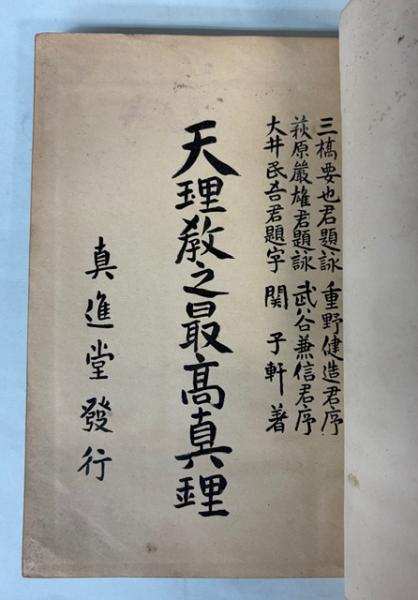 三橋要也君題詠 重野健造君序
萩原嚴雄君題詠 武谷兼信君序
大井民吾君題字 関子軒著
天理教之最高真理
真進堂發行